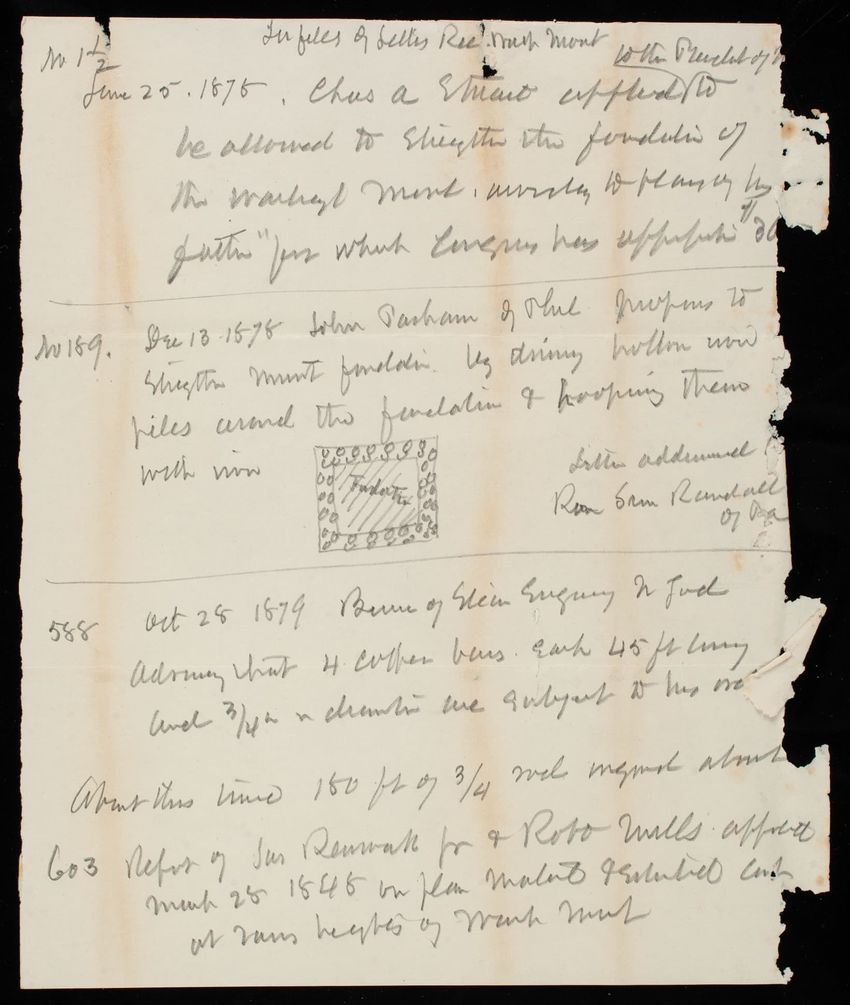 In files of Letters Rec'd Wash Mont
No 1 1/2 to the President of
June 25. 1878. Chas a Stuart applied to
be allowed to Strengthen the foundation of
the Mont. according to plans of his
father "for which Congress has appropriated" 30
No 189. Dec 13 1878 John of Phil proposes to
Strengthen Mont foundation by driving hollow iron
piles around the foundation & hooping them
with iron
Foundation
Letter addressed
Randall
of Pa
588 Oct 28 1879 Bureau of Steam Engineering N Yard
Advising that 4 copper bars each 45 ft long
and 3/4 in diameter are subject to his order
About this time 180 ft of 3/4 rods inquired about
603 Report of Jas Renwick Jr & Robt Mills approved
March 28 1848 on plan material & Estimated cost
at various heights of Wash Mont